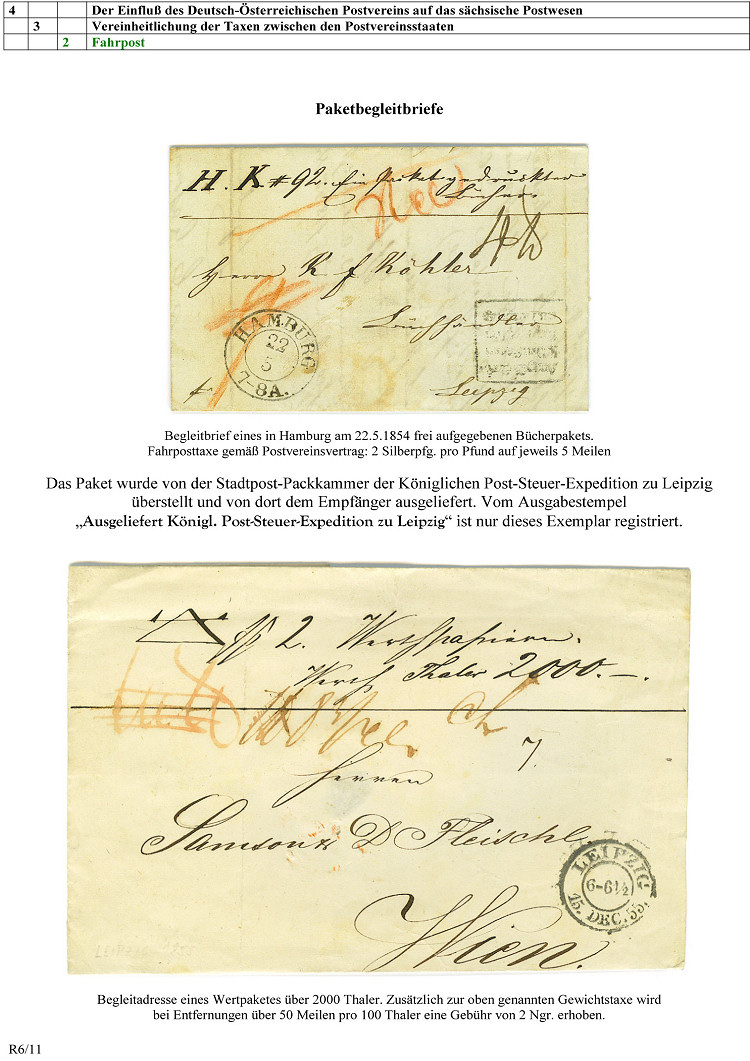 4 Der Einfluß des Deutsch-Österreichischen Postvereins auf das sächsische Postwesen
3 Vereinheitlichung der Taxen zwischen den Postvereinsstaaten
2 Fahrpost
Paketbegleitbriefe
H. K # 92. Ein Paket gedruckter
Bücher
Herrn K f Köhler
Buchhändler
Leipzig
HAMBURG
22
5
7-8A.
Begleitbrief eines in Hamburg am 22.5.1854 frei aufgegebenen Bücherpakets.
Fahrposttaxe gemäß Postvereinsvertrag: 2 Silberpfg. pro Pfund auf jeweils 5 Meilen
Das Paket wurde von der Stadtpost-Packkammer der Königlichen Post-Steuer-Expedition zu Leipzig
überstellt und von dort dem Empfänger ausgeliefert. Vom Ausgabestempel
„Ausgeliefert Königl. Post-Steuer-Expedition zu Leipzig“ ist nur dieses Exemplar registriert.
2. Werthpapieren.
Werth Thaler 2000.—.
7.
Herren
Samson & D Fleischl
Wien.
LEIPZIG
6-6½
15. DEC. 55.
Begleitadresse eines Wertpaketes über 2000 Thaler. Zusätzlich zur oben genannten Gewichtstaxe wird
bei Entfernungen über 50 Meilen pro 100 Thaler eine Gebühr von 2 Ngr. erhoben.
R6/11